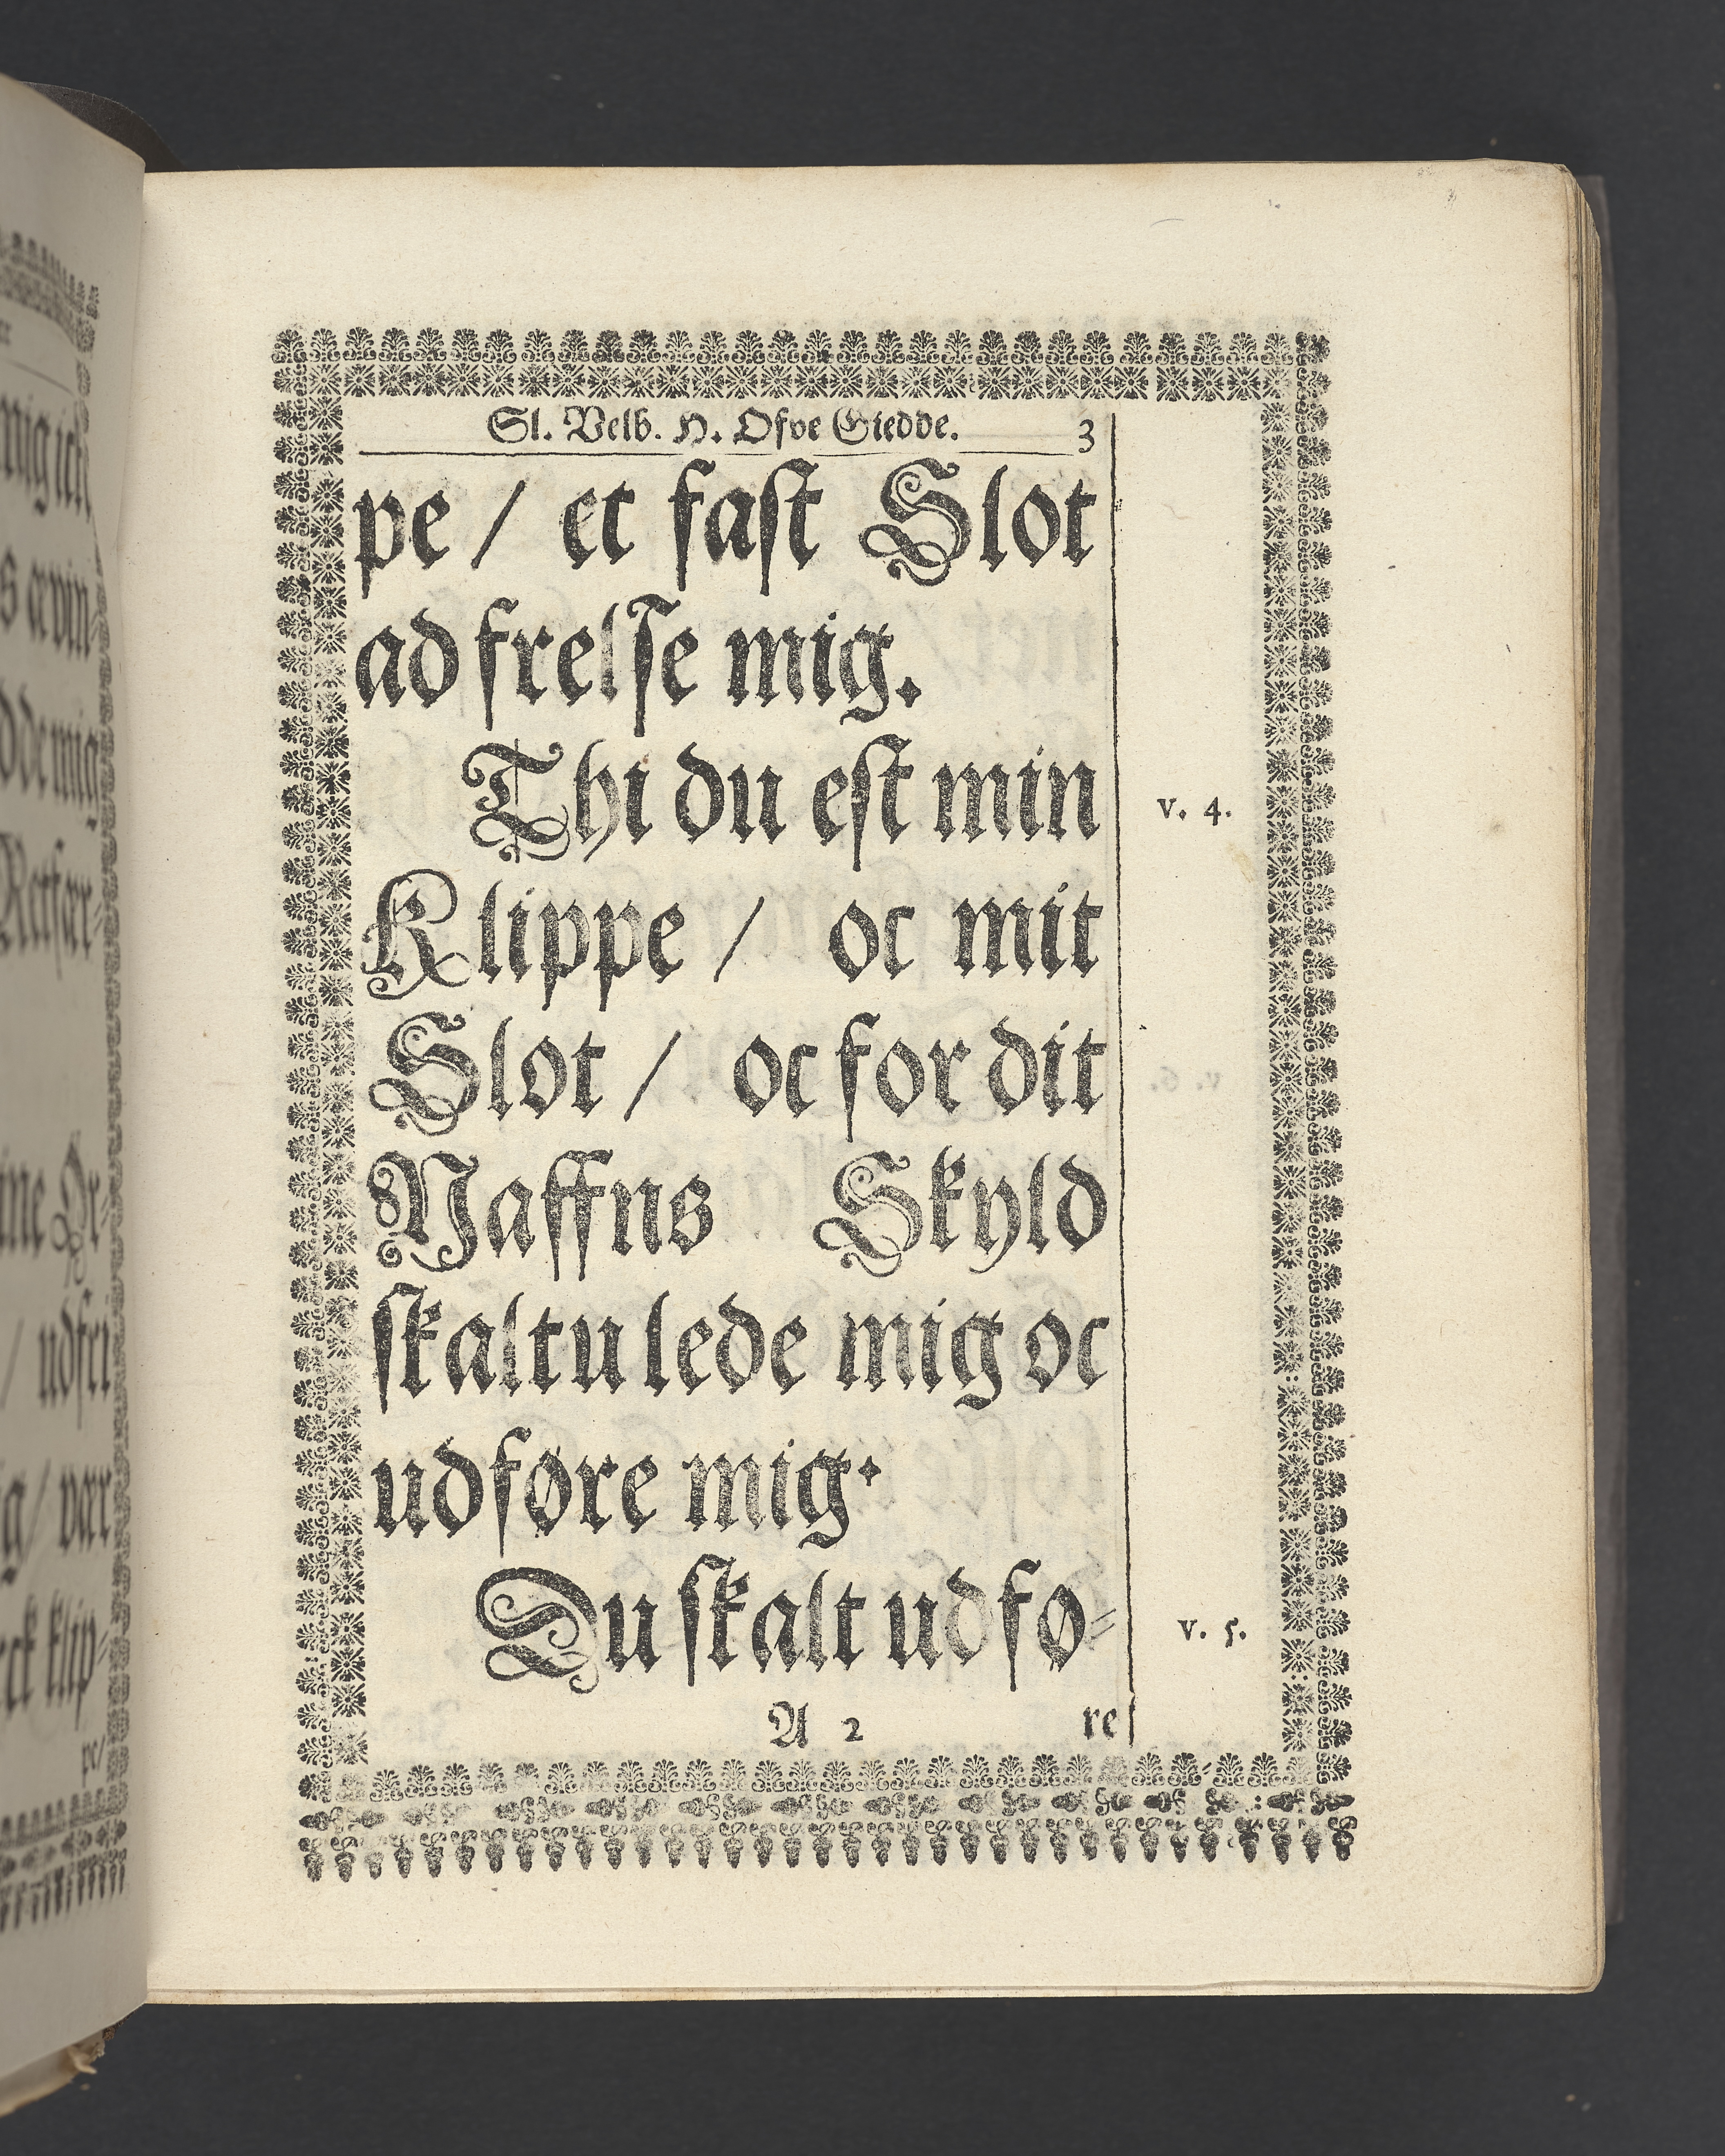 Sl. Velb. H. Ofve Giedde. 3
pe / et fast Slot
ad frelse mig.
Thi du est min
v. 4.
Klippe / oc mit
Slot / oc for dit
Naffns Skyld
skaltu lede mig oc
udføre mig.
Du skalt udfø=
v. 5.
A 2 re